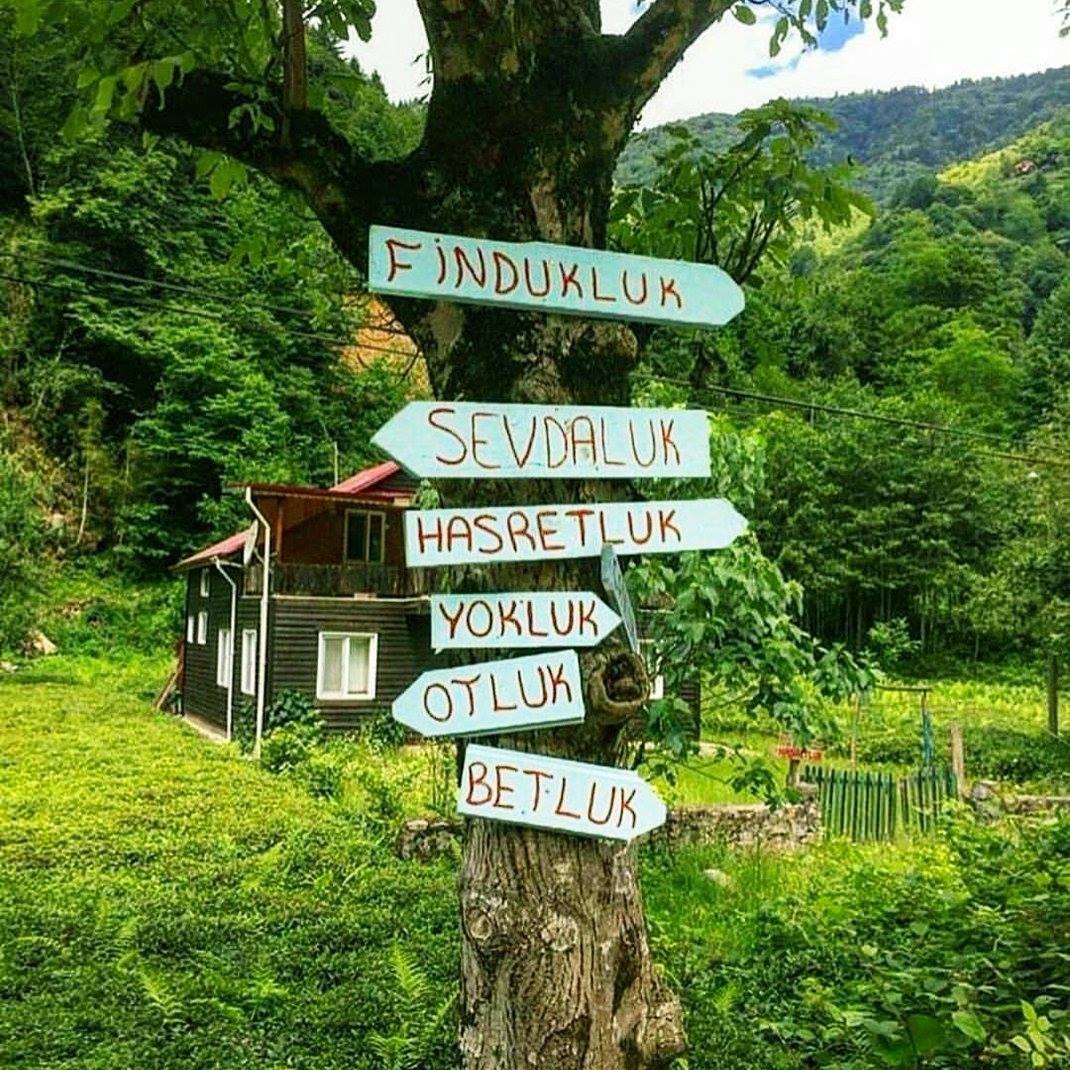 FİNDUKLUK
SEVDALUK
HASRETLUK
YOKLUK
OTLUK
BETLUK